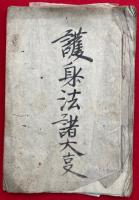 護身法諸大事